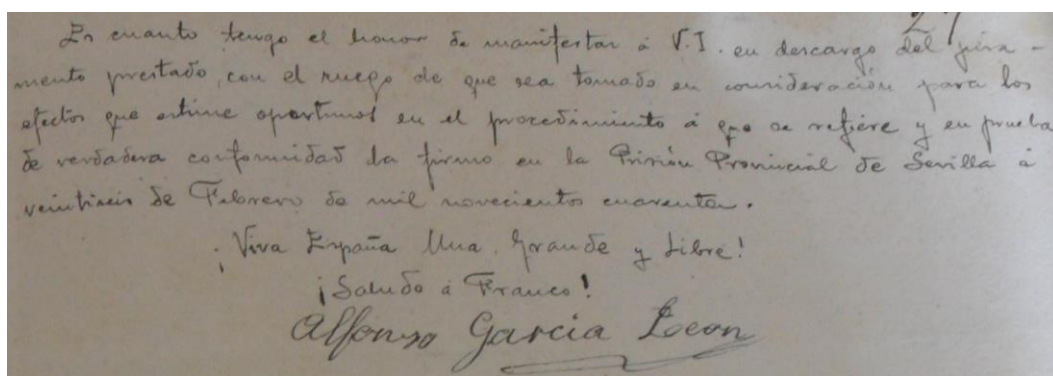 27
Es cuanto tengo el honor de manifestar á V.I. en descargo del jura-
mento prestado, con el ruego de que sea tomado en consideración para los
efectos que estime oportunos en el procedimiento á que se refiere y en prueba
de verdadera conformidad la firmo en la Prisión Provincial de Sevilla á
veintiseis de Febrero de mil novecientos cuarenta.
¡Viva España Una, Grande y Libre!
¡Saludo á Franco!
Alfonso Garcia Leon